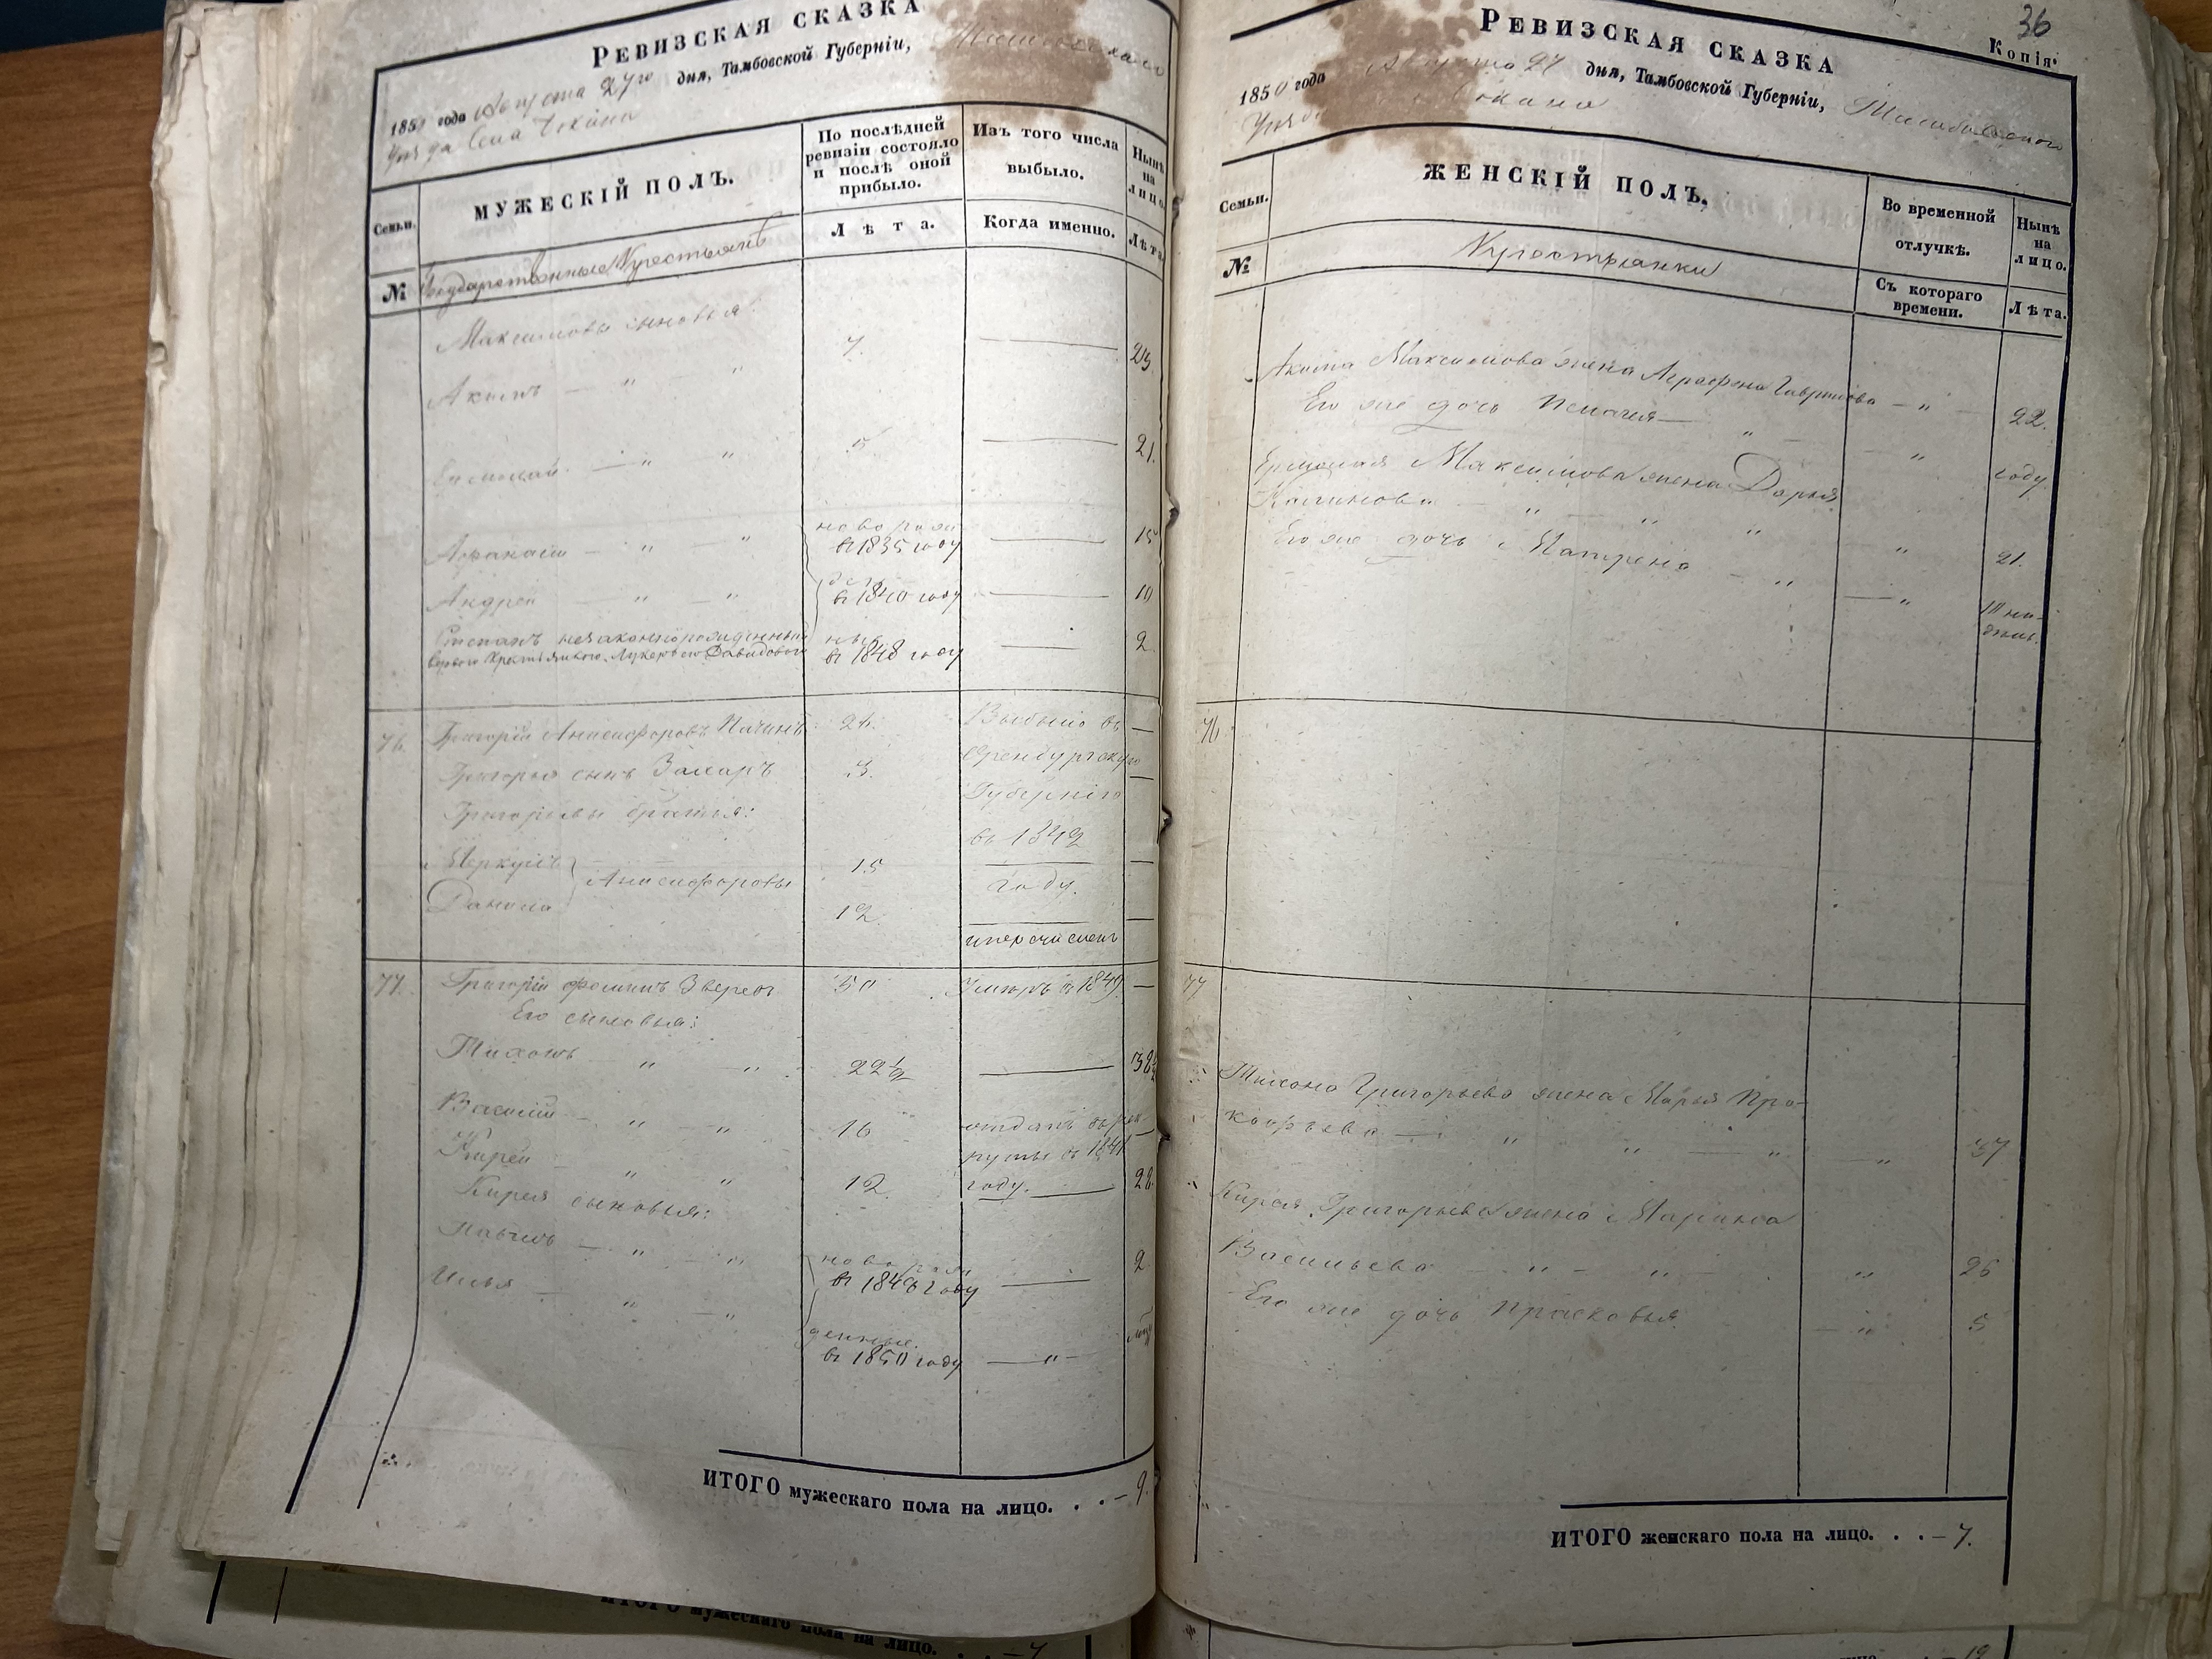 РЕВИЗСКАЯ СКАЗКА
1850 года Августа 27го дня, Тамбовской Губерніи,
Уѣзда Села
Семьи.
МУЖЕСКІЙ ПОЛЪ.
По послѣдней ревизіи состояло и послѣ оной прибыло.
Изъ того числа выбыло.
Нынѣ на лицо.
№
Государственные Крестьяне
Лѣта.
Когда именно.
Лѣта.
Максимовы сыновья:
Акимъ — " — " 7. — 23.
Ермолай — " " 5 — 21.
Афанасій — " — " ново рож въ 1835 году — 15
Андрей — " — " въ 1840 году — 10
Степанъ незаконнорожденный въ 1848 году — 2
76. Григорій Анисифоровъ 24. Выбыло въ —
Григорья сынъ Захаръ 3. Оренбургскую —
Григорьевы братья: Губернію
въ 1842
Меркулъ 15 —
Анисифоровы году.
Данила 12. —
и перечислен
77. Григорій Фоминъ Зверев 50 Умеръ в 1849 —
Его сыновья:
Тихонъ " " 22½ — 38½
Василій — " — " 16 отданъ в рек- —
руты в 1841
Кирей — " " 12. году. — 28
Кирея сыновья:
Павелъ — " " ново рож въ 1848 году — 2
Илья — " — " денные. въ 1850 году — " —
ИТОГО мужескаго пола на лицо. . . — 9.
36
Копія.
РЕВИЗСКАЯ СКАЗКА
1850 года Августа 27 дня, Тамбовской Губерніи,
Семьи.
ЖЕНСКІЙ ПОЛЪ.
Во временной отлучкѣ.
Нынѣ на лицо.
№
Крестьянки
Съ котораго времени.
Лѣта.
Акима Максимова жена Аграфена Гаврилова — " — 22.
Его же дочь Пелагея — " — " году
Ермолая Максимова жена Дарья
Калинова — " " " " 21.
Его же дочь Матрена — " — "
76
77
Тихона Григорьева жена Марья Про-
кофьева — " " — " — " 37
Кирея Григорьева жена Марина
Васильева — " — " — " 26
Его же дочь Прасковья — " 5
ИТОГО женскаго пола на лицо. . . — 7.
ИТОГО мужескаго пола на лицо.